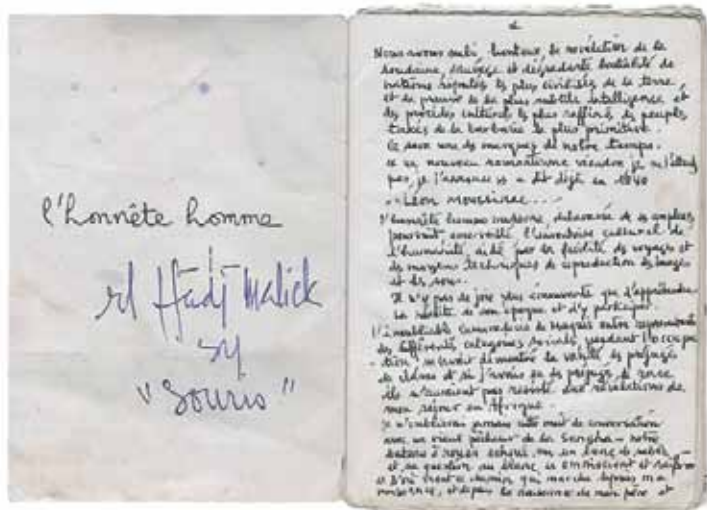 l'honnête homme
el Hadj Malick
sy
"Souris"
Nous avons subi, honteux, la révélation de la
soudaine, sauvage et dégradante bestialité de
nations réputées les plus civilisées de la terre
et la preuve de la plus subtile intelligence et
des procédés culturels les plus raffinés de peuples
taxés de la barbarie la plus primitive.
Ce sera une des marques de notre temps.
Ce nouveau romantisme viendra, je ne l'attends
pas, je l'annonce a dit déjà en 1940
Léon Moussinac...
L'honnête homme moderne, débarrassé de
poursuit émerveillé l'inventaire culturel de
l'humanité aidé par la facilité des voyages et
des moyens techniques de reproduction des images
et des sons.
Il n'y a pas de joie plus émouvante que d'appréhender
la réalité de son époque et d'y participer.
L'inoubliable camaraderie de maquis entre
des différentes catégories sociales pendant l'occupa
-tion m'avait démontré la vanité des préjugés
de classe et si j'avais eu des préjugés de race
ils n'auraient pas résisté aux révélations de
mon séjour en Afrique.
Je n'oublierai jamais cette nuit de conversation
avec un vieux pêcheur de la Sangha - notre
bateau à roues échoué sur un banc de sable -
et sa question au blanc
D'où vient ce chemin qui marche depuis ma
naissance, et depuis la naissance de mon père et